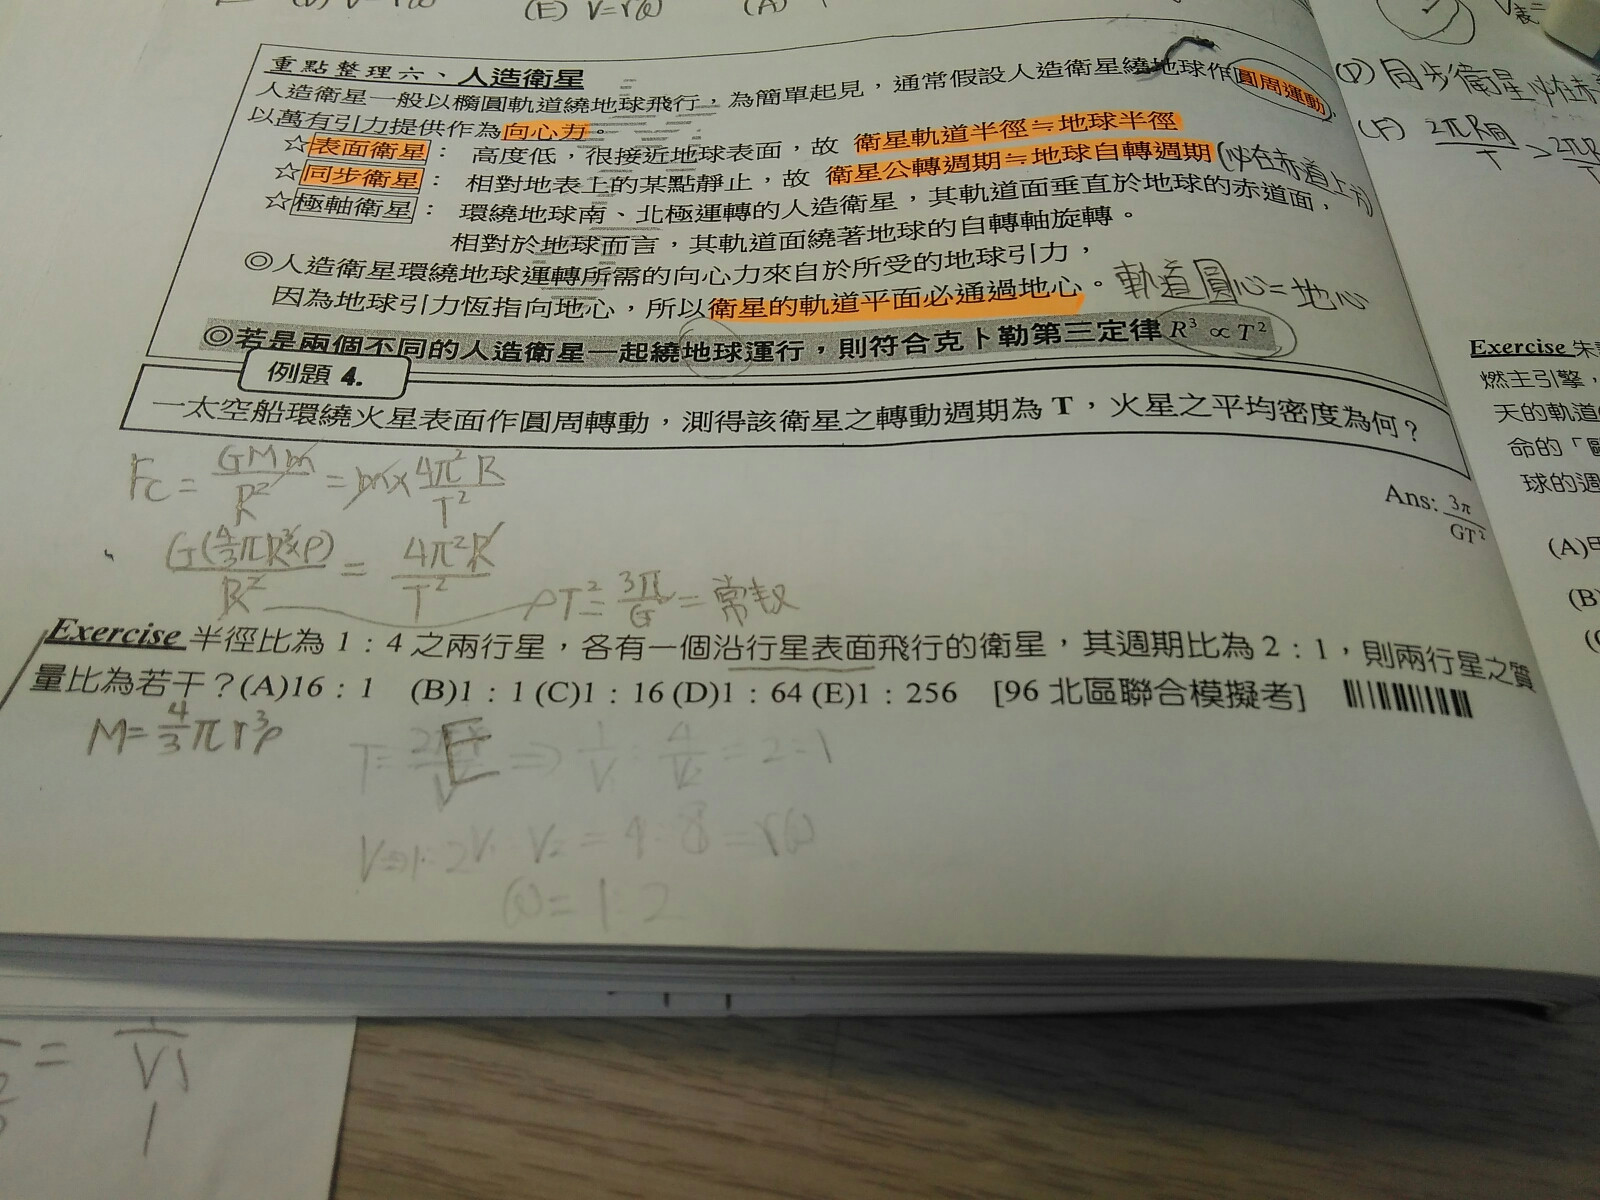 (E) V=rω
(A)
重點整理六、人造衛星
人造衛星一般以橢圓軌道繞地球飛行，為簡單起見，通常假設人造衛星繞地球作圓周運動，
以萬有引力提供作為向心力。
☆表面衛星： 高度低，很接近地球表面，故 衛星軌道半徑≒地球半徑
☆同步衛星： 相對地表上的某點靜止，故 衛星公轉週期≒地球自轉週期(必在赤道上方)
☆極軸衛星： 環繞地球南、北極運轉的人造衛星，其軌道面垂直於地球的赤道面，
相對於地球而言，其軌道面繞著地球的自轉軸旋轉。
◎人造衛星環繞地球運轉所需的向心力來自於所受的地球引力，
因為地球引力恆指向地心，所以衛星的軌道平面必通過地心。軌道圓心=地心
◎若是兩個不同的人造衛星一起繞地球運行，則符合克卜勒第三定律 R³ ∝ T²
例題 4.
一太空船環繞火星表面作圓周轉動，測得該衛星之轉動週期為 T，火星之平均密度為何？
Fc = GMm/R² = m×4π²R/T²
Ans: 3π/GT²
G(4/3πR³×ρ)/R² = 4π²R/T²
ρT² = 3π/G = 常數
Exercise 半徑比為 1：4 之兩行星，各有一個沿行星表面飛行的衛星，其週期比為 2：1，則兩行星之質
量比為若干？(A)16：1 (B)1：1 (C)1：16 (D)1：64 (E)1：256 [96 北區聯合模擬考]
M=4/3πr³ρ
E
ω=1:2
(D)同步衛星必在赤
(F) 2πR同/T >
Exercise 朱
燃主引擎，
天的軌道
命的「
球的週
(A)甲
(B)